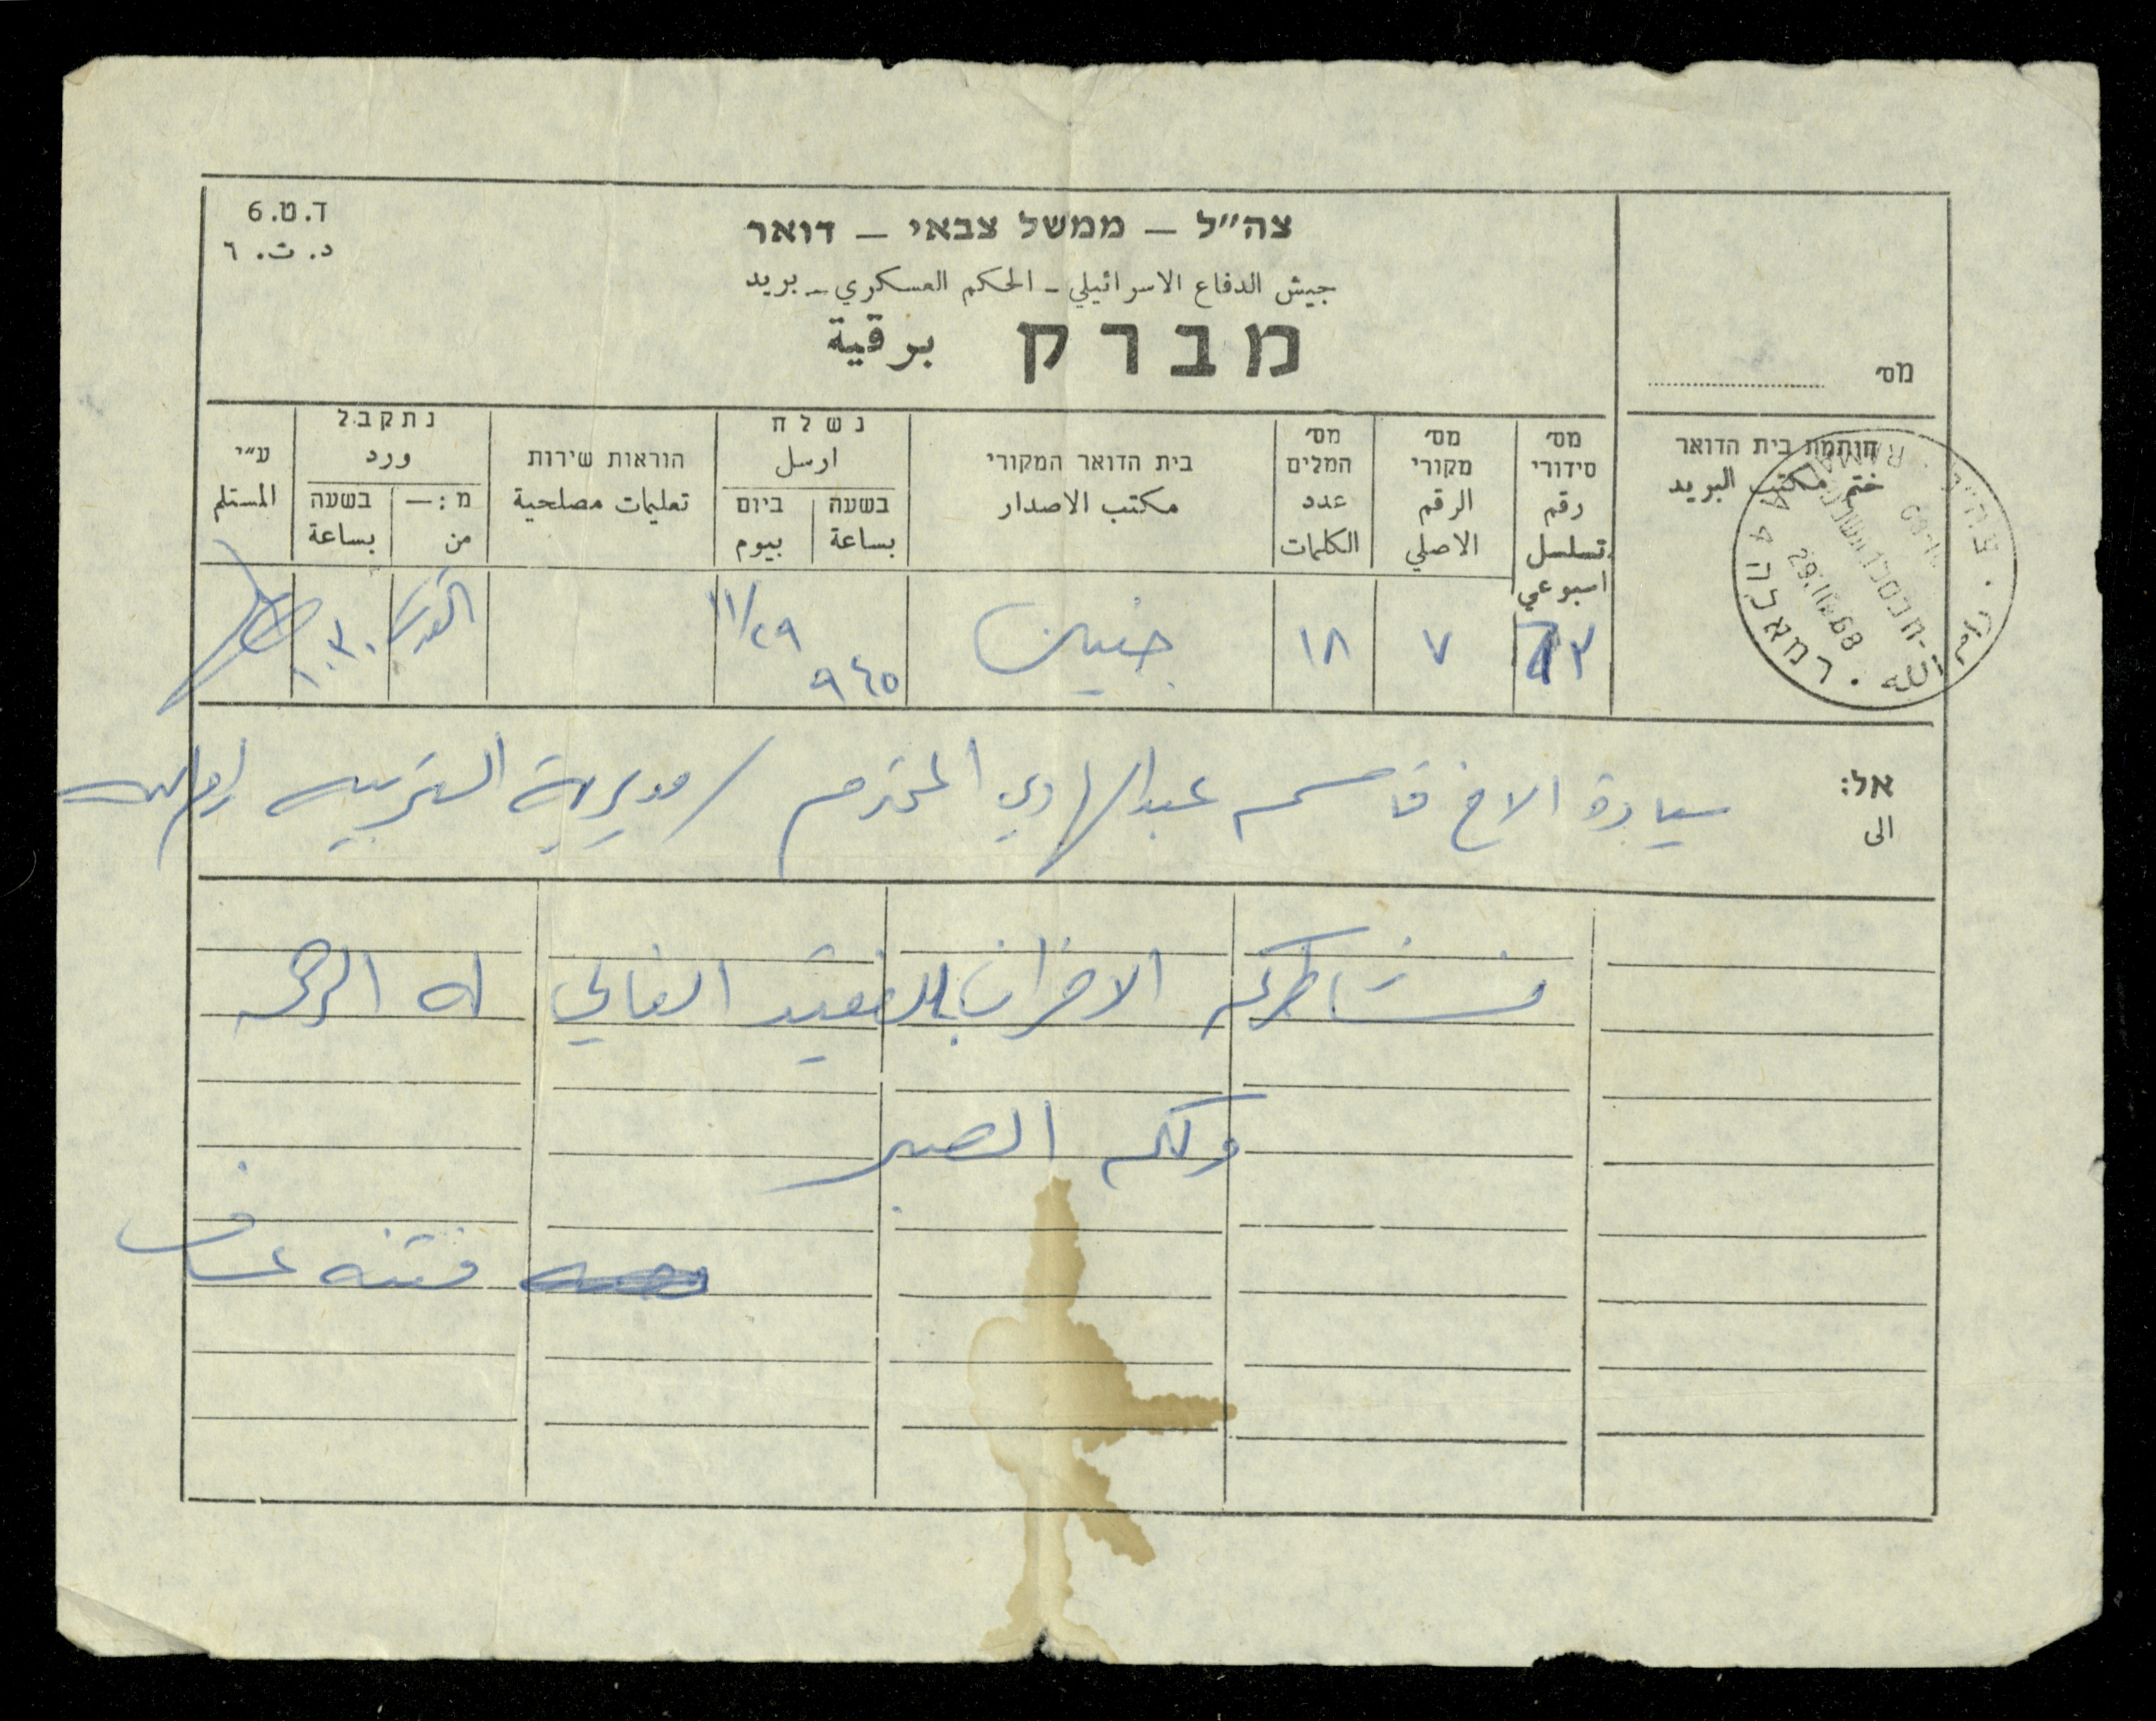 ד.ט.6
د. ت. ٦
צה"ל – ממשל צבאי – דואר
جيش الدفاع الاسرائيلي – الحكم العسكري – بريد
מברק برقية
מס׳
חותמת בית הדואר
ختم مكتب البريد
מס׳ סידורי
رقم تسلسل اسبوعي
מס׳ מקורי
الرقم الاصلي
מס׳ המלים
عدد الكلمات
בית הדואר המקורי
مكتب الاصدار
נשלח
ارسل
בשעה
بساعة
ביום
بيوم
הוראות שירות
تعليمات مصلحية
נתקבל
ورد
מ: –
من
בשעה
بساعة
ע"י
المستلم
רמאללה
رام الله
29.11.68
٧
١٨
جنين
٩٤٥
١١/٢٩
القدس
١٠٣٠
אל:
الى
سيادة الاخ قاسم عبدالهادي المحترم / مديرية التربيه رام الله
نشاطركم الاحزان بالفقيد الغالي له الرحمه
ولكم الصبر
فتنه عساف